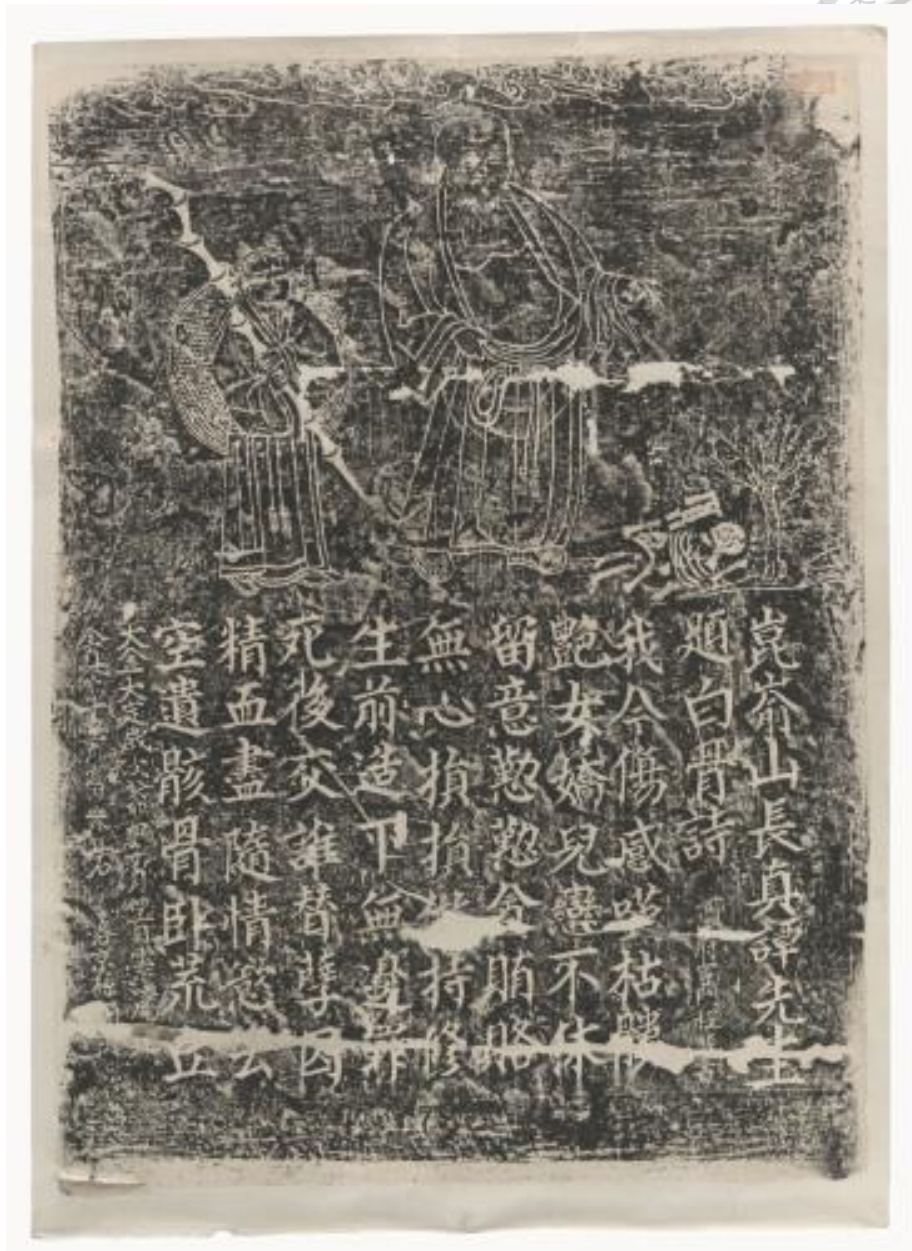 崑嵛山長真譚先生
題白骨詩
我今傷感嘆枯髏
艷女嬌兒戀不休
留意懃懃貪賄賂
無心損損持修
生前造下盈罪
死後交誰替孽囚
精血盡隨情慾去
空遺骸骨卧荒丘
大金大定